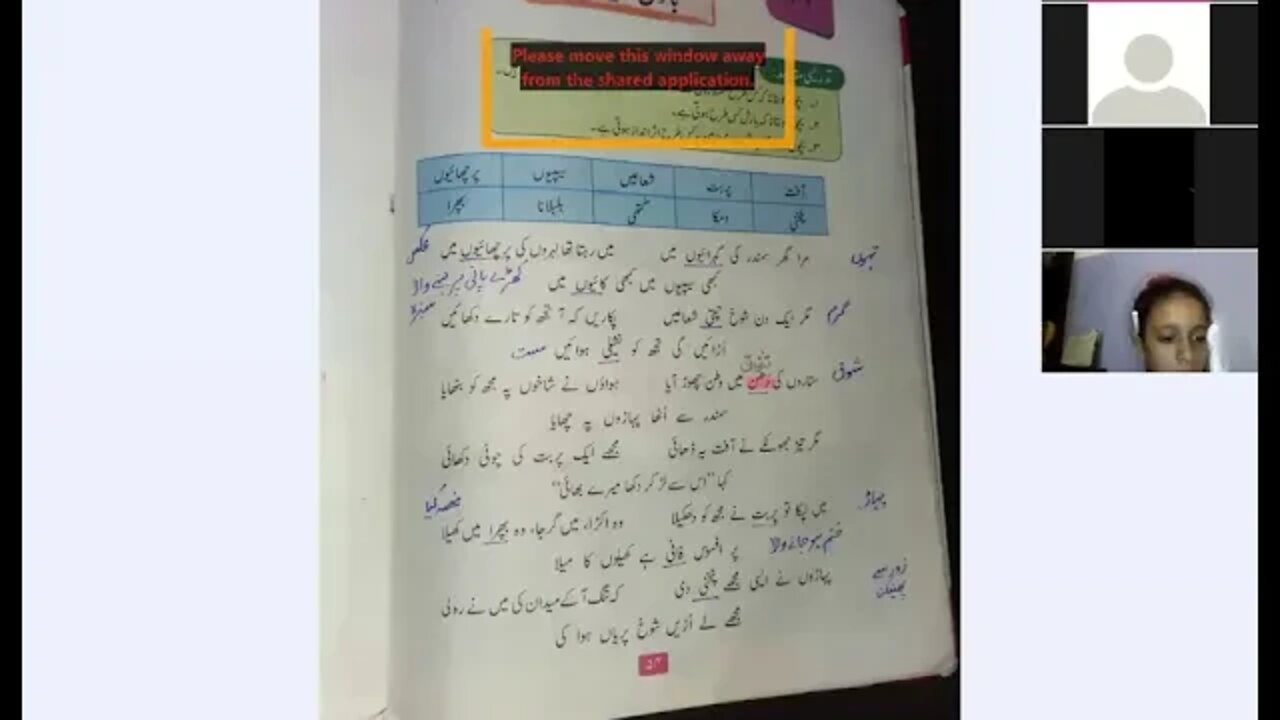 Please move this window away
from the shared application.
بچوں کو بتانا کہ بارش کس طرح ہوتی ہے۔
آفت پربت شعاعیں سیپیوں پرچھائیوں
پٹخنی دھکا ننھی بلبلانا بچرا
مرا گھر سمندر کی گہرائیوں میں میں رہتا تھا لہروں کی پرچھائیوں میں
تہہیں عکس
کبھی سیپیوں میں کبھی کائیوں میں
کھڑے پانی پر جمنے والا سبزہ
مگر ایک دن شوخ تپتی شعاعیں پکاریں کہ آ تجھ کو تارے دکھائیں
گرم
اُڑائیں گی تجھ کو نشیلی ہوائیں
مست
ستاروں کی دھن میں وطن چھوڑ آیا ہواؤں نے شاخوں پہ مجھ کو بٹھایا
شوق
سمندر سے اُٹھا پہاڑوں پہ چھایا
مگر تیز جھونکے نے آفت یہ ڈھائی مجھے ایک پربت کی چوٹی دکھائی
کہا "اس سے لڑ کر دکھا میرے بھائی"
میں لپکا تو پربت نے مجھ کو دھکیلا وہ اکڑا، میں گرجا، وہ بچرا میں کھیلا
پہاڑ غصہ کیا
پر افسوس فانی ہے کھیلوں کا میلا
ختم ہو جانے والا
پہاڑوں نے ایسی مجھے پٹخنی دی کہ تنگ آ کے میدان کی میں نے رہ لی
زور سے
مجھے لے اُڑیں شوخ پریاں ہوا کی
۵۲